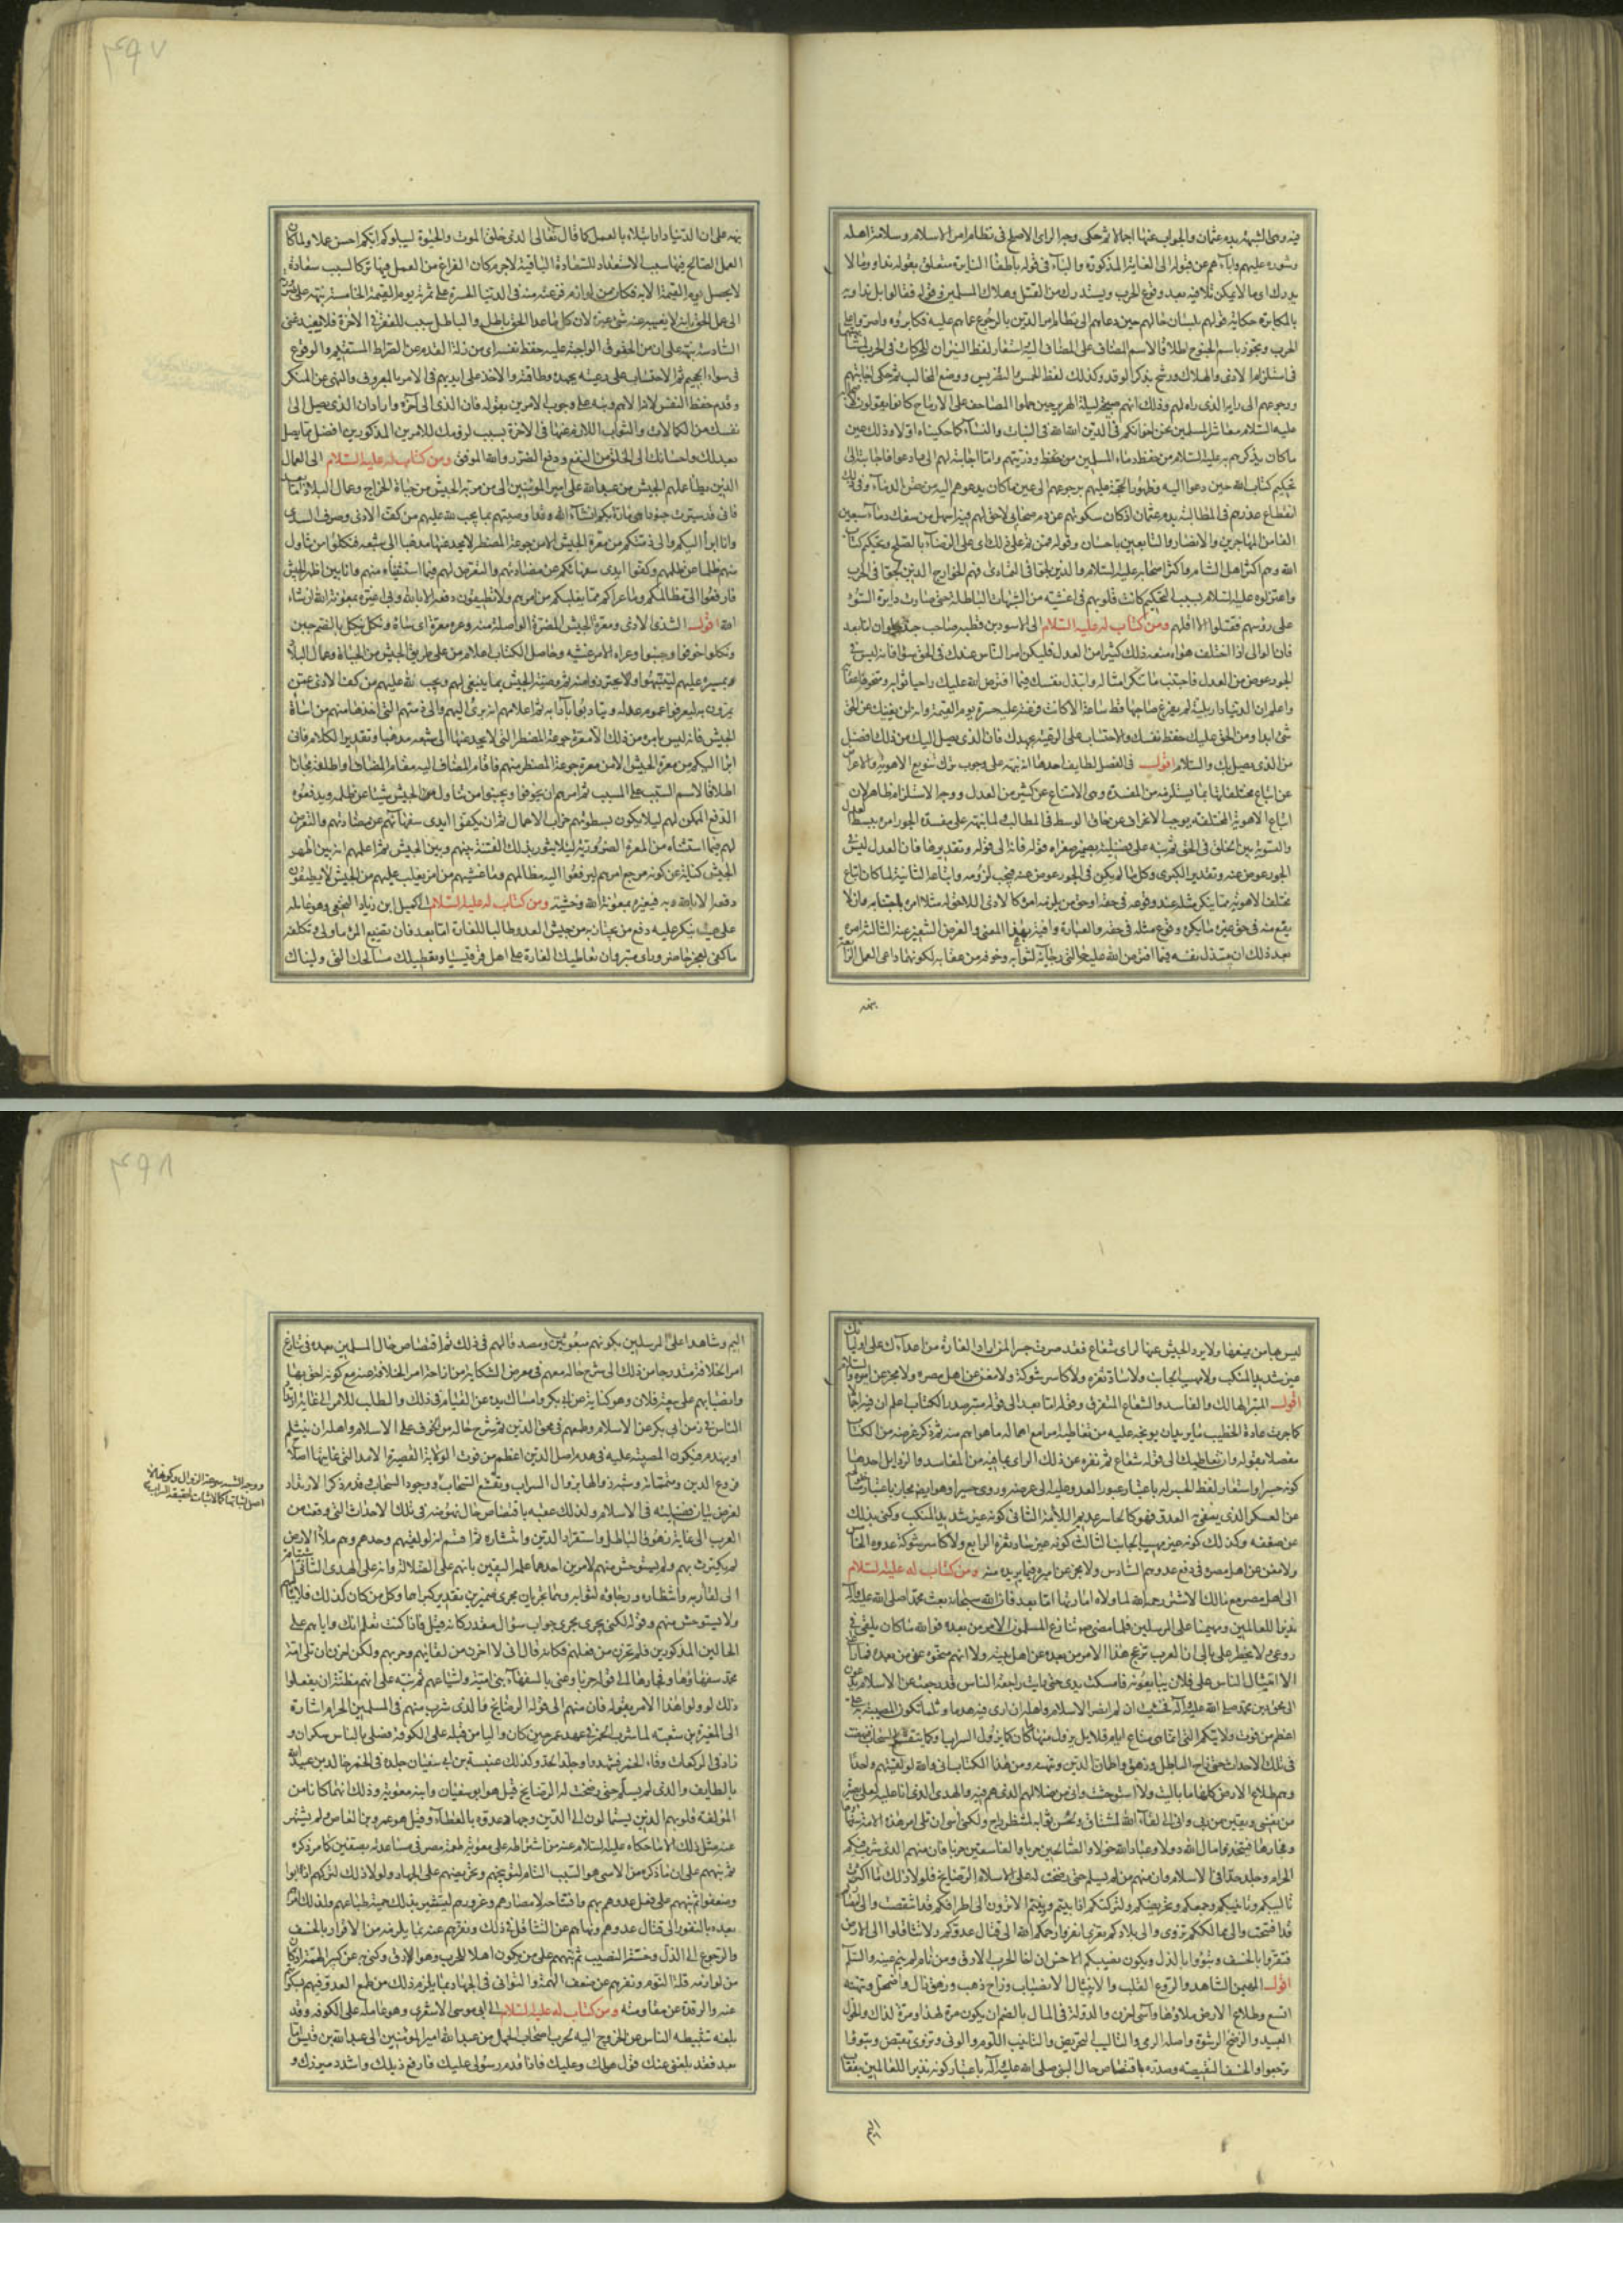 ٣٩٧
فيه وهى الشبهة بدم عثمان والجواب عنها اجمالا ثم حكى وجه الراى الاصلح فى نظام امر الاسلام وسلامة اهله
وشوره عليهم واباءهم عن قبوله الى الغاية المذكورة والباء فى قوله باطفاء النايرة متعلق بقوله نداوى ما لا
يدرك اى ما لا يمكن تلافيه بعد وقوع الحرب ويستدرك من القتل وهلاك المسلمين وقوله فقالوا بل نداويه
بالمكابرة حكاية قولهم بلسان حالهم حين دعاهم الى نظام امر الدين بالرجوع عما هم عليه فكابروه
الحرب وتجوز باسم الجنوح اطلاقا لاسم المضاف على المضاف اليه استعار لفظ النيران للحركات فى الحرب
ورجوعهم الى رايه الذى راه لهم وذلك انهم صبيحة ليلة الهرير حين حملوا المصاحف على الارماح كانوا يقولون
عليه السلام معاشر المسلمين نحن اخوانكم فى الدين الله الله فى البنات والنساء كما حكيناه اولا وذلك عين
ما كان يذكرهم به عليه السلام من حفظ دماء المسلمين وذريتهم واما اجابته لهم الى ما دعوا فاجابته الى
تحكيم كتاب الله حين دعوا اليه وظهور الحجة عليهم برجوعهم الى عين ما كان يدعوهم اليه من حقن الدماء
انقطاع عذرهم فى المطالبة بدم عثمان اذ كان سكوتهم عن دم صحابى لا حق لهم فيه اسهل من سفك دماء سبعين
الفا من المهاجرين والانصار والتابعين باحسان وقوله فمن تم على ذلك اى على الرضاء بالصلح وتحكيم كتاب
الله وهم اكثر اهل الشام واكثر اصحابه عليه السلام والذين لجوا فى التمادى فهم الخوارج الذين لجوا فى الحرب
واعتزلوه عليه السلام بسبب التحكيم كانت قلوبهم فى اغشية من الشبهات الباطلة حتى صارت دايرة السوء
على رؤسهم فقتلوا الا اقلهم ومن كتاب له عليه السلام الى الاسود بن قطبة صاحب جند حلوان اما بعد
فان الوالى اذا اختلف هواه منعه ذلك كثيرا من العدل فليكن امر الناس عندك فى الحق سواء فانه ليس فى
الجور عوض من العدل فاجتنب ما تنكر امثاله وابتذل نفسك فيما افترض الله عليك راجيا ثوابه ومتخوفا عقابه
واعلم ان الدنيا دار بلية لم يفرغ صاحبها قط ساعة الا كانت فرغته عليه حسرة يوم القيمة وانه لن يغنيك عن الحق
شئ ابدا ومن الحق عليك حفظ نفسك والاحتساب على الرعية بجهدك فان الذى يصل اليك من ذلك افضل
من الذى يصل بك والسلام اقول فى الفصل لطايف احدها انه نبه على وجوب ترك تنويع الاهوية
عن اتباع مختلفاتها بما يستلزمه من المفسدة وهى الامتناع عن كثير من العدل ووجه الاستلزام ظاهر لان
اتباع الاهوية المختلفة يوجب الانحراف عن حاق الوسط فى المطالب
والتسوية بين الخلق فى الحق ثم نبه على فضيلته بضمير صغراه قوله فانه الى قوله وتقدير
الجور عوض عنه وتقدير الكبرى وكل ما لم يكن فى الجور عوض عنه فيجب لزومه واتباعه الثانية لما كان اتباع
مختلف الاهوية مما ينكر مثله عند وقوعه فى حقه
يقع منه فى حق غيره ما يكره وقوع مثله فى حقه
بعد ذلك ان يبتذل نفسه فيما افترض الله عليه
نبه
نبه على ان الدنيا دار ابتلاء بالعمل كما قال تعالى الذى خلق الموت والحيوة ليبلوكم ايكم احسن عملا ولما كان
العمل الصالح فيها سبب الاستعداد للسعادة الباقية لاجرم كان الفراغ من العمل فيها تركا لسبب سعادة
لا يحصل يوم القيمة الا به فكان من لوازم فرغته منه فى الدنيا الحسرة على ثمرته يوم القيمة الخامسة نبه على
الى عمل الحق بانه لا يغنيه عنه شئ غيره لان كل ما عدا الحق باطل والباطل سبب للفقر فى الاخرة فلا يفيد غنى
السادسة نبه على ان من الحقوق الواجبة عليه حفظ نفسه اى من زلة القدم عن الصراط المستقيم والوقوع
فى سواء الجحيم ثم الاحتساب على رعيته بجهده وطاقته والاخذ على ايديهم فى الامر بالمعروف والنهى عن المنكر
وقدم حفظ النفس لانه الاهم ونبه على وجوب الامرين بقوله فان الذى الى آخره واراد ان الذى يصل الى
نفسك من الكمالات والثواب اللازم عنها فى الاخرة بسبب لزومك للامرين المذكورين افضل مما يصل
بعدلك واحسانك الى الخلق من النفع ودفع الضرر والله الموفق ومن كتاب له عليه السلام الى العمال
الذين يطأ عملهم الجيش من عبد الله على امير المومنين الى من مر به الجيش من جباة الخراج وعمال البلاد اما بعد
فانى قد سيرت جنودا هى مارة بكم ان شاء الله وقد اوصيتهم بما يجب لله عليهم من كف الاذى وصرف الشذى
وانا ابرأ اليكم والى ذمتكم من معرة الجيش الا من جوعة المضطر لا يجد عنها مذهبا الى شبعه فنكلوا من تناول
منهم ظلما عن ظلمهم وكفوا ايدى سفهائكم عن مضادتهم والتعرض لهم فيما استثنيناه منهم وانا بين اظهر الجيش
فارفعوا الى مظالمكم وما عراكم مما يغلبكم من امرهم ولا تطيقون دفعه الا بالله وبى اغيره بمعونة الله ان شاء
الله اقول الشذى الاذى ومعرة الجيش المضرة الواصلة منه وعره معرة اى ساه ونكل ينكل بالضم جبن
ونكلوا خوفوا وجبنوا وعراه الامر غشيه وحاصل الكتاب اعلام من على طريق الجيش من الجباة وعمال البلاد
بمسيره عليهم
يمرون به ليعرفوا عموم عدله ويتادبوا بآدابه ثم اعلامهم انه برئ اليهم والى ذمتهم التى اخذها منهم من اساءة
الجيش فانه ليس بامره من ذلك الا معرة جوعة المضطر التى لا يجد عنها الى شبعه مذهبا وتقدير الكلام فانى
ابرأ اليكم من معرة الجيش الا من معرة جوعة المضطر منهم فاقام المضاف اليه مقام المضاف واطلقه مجازا
اطلاقا لاسم السبب على المسبب ثم امرهم ان يخوفوا ويجبنوا من تناول من الجيش شيئا عن ظلمه ويدفعوه
الدفع الممكن لهم ليلا يكون بسطوتهم خراب الاعمال ثم ان يكفوا ايدى سفهائهم عن مضادتهم والتعرض
لهم فيما استثناه من المعرة الضرورية ليلا يثور بذلك الفتنة بينهم وبين الجيش ثم اعلمهم انه بين اظهر
الجيش كناية عن كونه مرجع امرهم ليرفعوا اليه مظالمهم وما غشيهم من امر يغلب عليهم من الجيش لا يطيقون
دفعه الا بالله وبه فيغيره بمعونة الله وخشيته ومن كتاب له عليه السلام الى كميل ابن زياد النخعى وهو عامله
على هيت ينكر عليه دفع من يجتاز به من جيش العدو طالبا للغارة اما بعد فان تضييع المرء ما ولى وتكلفه
ما كفى لعجز حاضر وراى متبر وان تعاطيك الغارة على اهل قرقيسيا وتعطيلك مسالحك التى وليناك
٣٩٨
ليس بها من يمنعها ولا يرد الجيش عنها لراى شعاع فقد صرت جسرا لمن اراد الغارة من اعداءك على اوليائك
غير شديد المنكب ولا مهيب الجانب ولا ساد ثغره ولا كاسر شوكة ولا مغن عن اهل مصره ولا مجز عن اميره والسلام
اقول المتبر الهالك والفاسد والشعاع المتفرق وقوله اما بعد الى قوله متبر صدر الكتاب
كما جرت عادة الخطيب
مفصلا بقوله وان تعاطيك الى قوله شعاع ثم نفره عن ذلك الراى بما فيه من المفاسد والرذايل احدها
كونه جسرا واستعار لفظ الجسر له باعتبار عبور العدو عليه الى غرضه وروى حسرا وهو ايضا مجاز باعتبار خلوه
عن العسكر الذى يتقى به العدو فهو كالحاسر عديم اللامة الثانى كونه غير شديد المنكب وكنى بذلك
عن ضعفه وكذلك كونه غير مهيب الجانب الثالث كونه غير ساد ثغره الرابع ولا كاسر شوكة عدوه الخامس
ولا مغن عن اهل مصره فى دفع عدوهم السادس ولا مجز عن اميره فيما يريد منه ومن كتاب له عليه السلام
الى اهل مصر مع مالك الاشتر رحمه الله لما ولاه امارتها اما بعد فان الله سبحانه بعث محمدا صلى الله عليه وآله
نذيرا للعالمين ومهيمنا على المرسلين فلما مضى ص تنازع المسلمون الامر من بعده فوالله ما كان يلقى فى
روعى ولا يخطر على بالى ان العرب تزعج هذا الامر من بعده عن اهل بيته ولا انهم منحوه عنى من بعده فما راعنى
الا انثيال الناس على فلان يبايعونه فامسكت يدى حتى رايت راجعة الناس قد رجعت عن الاسلام يدعون
الى محق دين محمد صلى الله عليه وآله فخشيت ان لم انصر الاسلام واهله ان ارى فيه هدما وثلما تكون المصيبة به على
اعظم من فوت ولايتكم التى انما هى متاع ايام قلايل يزول منها ما كان كما يزول السراب وكما يتقشع السحاب فنهضت
فى تلك الاحداث حتى زاح الباطل وزهق واطمان الدين وتنهنه ومن هذا الكتاب انى والله لو لقيتهم واحدا
وهم طلاع الارض كلها ما باليت ولا استوحشت وانى من ضلالهم الذى هم فيه والهدى الذى انا عليه لعلى بصيرة
من نفسى ويقين من ربى وانى الى لقاء الله لمشتاق ولحسن ثوابه لمنتظر راج ولكننى آسى ان يلى امر هذه الامة سفهاؤها
وفجارها فيتخذوا مال الله دولا وعباد الله خولا والصالحين حربا والفاسقين حزبا فان منهم الذى شرب فيكم
الحرام وجلد حدا فى الاسلام وان منهم من لم يسلم حتى رضخت له على الاسلام الرضايخ فلولا ذلك ما اكثرت
تاليبكم وتانيبكم وجمعكم وتحريضكم ولتركتكم اذ ابيتم وونيتم الا ترون الى اطرافكم قد انتقصت والى امصاركم
قد افتتحت والى ممالككم تزوى والى بلادكم تغزى انفروا رحمكم الله الى قتال عدوكم ولا تثاقلوا الى الارض
فتقروا بالخسف وتبوؤا بالذل ويكون نصيبكم الاخس وان اخا الحرب الارق ومن نام لم ينم عنه والسلام
اقول المهيمن الشاهد والروع القلب والانثيال الانصباب وزاح ذهب وزهق زال واضمحل وتنهنه
اتسع وطلاع الارض ملاؤها وآسى احزن والدولة فى المال بالضم ان يكون مرة لهذا ومرة لذاك والخول
العبيد والرضخ الرشوة واصله الرمى والتاليب التحريض والتانيب اللوم والونى وتزوى تقبض وتبوؤا
ترجعوا والخسف النقيصة وصدره باقتصاص حال النبى صلى الله عليه وآله باعتبار كونه نذيرا للعالمين بعقاب
اليم
اليم وشاهدا على المرسلين بكونهم مبعوثين ومصدقا لهم فى ذلك ثم اقتصاص حال المسلمين بعده فى تنازع
امر الخلافة متدرجا من ذلك الى شرح حاله معهم فى معرض الشكاية من ازاحة امر الخلافة عنه مع كونه احق بها
وانصبابهم على بيعة فلان وهو كناية عن ابى بكر وامساك يده عن القيام فى ذلك والطلب للامر الى غاية ارتداد
الناس فى زمن ابى بكر عن الاسلام وطمعهم فى محق الدين ثم شرح حاله من الخوف على الاسلام واهله ان ينثلم
او يهدم فيكون المصيبة عليه فى هدم اصل الدين اعظم من فوت الولاية القصيرة الامد التى غايتها اصلاح
فروع الدين ومتمماته وشبه زوالها بزوال السراب وتقشع السحاب ووجود السحاب وقدم ذكر الارتداد
لغرض بيان فضيلته فى الاسلام ولذلك عقبه باقتصاص حال نهوضه فى تلك الاحداث التى وقعت من
العرب الى غاية زهوق الباطل واستقرار الدين وانتشاره ثم اقسم انه لو لقيهم وحده وهم ملأ الارض
لم يكترث بهم ولم يستوحش منهم لامرين احدهما علمه اليقين بانهم على الضلالة وانه على الهدى الثانى
الى لقاء ربه وانتظاره ورجاؤه لثوابه وهما يجريان مجرى ضميرين تقدير كبراهما وكل من كان كذلك فلا يبالى
ولا يستوحش منهم وقوله لكننى يجرى مجرى جواب سؤال مقدر كانه قيل فاذا كنت تعلم انك واياهم على
الحالين المذكورين فلم تحزن من فعلهم فكانه قال انى لا احزن من لقائهم وحربهم ولكن احزن ان يلى امة
محمد سفهاؤها وفجارها الى قوله حزبا وعنى بالسفهاء بنى امية واشياعهم ثم نبه على انهم مظنة ان يفعلوا
ذلك لو ولوا هذا الامر بقوله فان منهم الى قوله الرضايخ فالذى شرب منهم فى المسلمين الحرام اشارة
الى المغيرة بن شعبة لما شرب الخمر فى عهد عمر حين كان واليا من قبله على الكوفة فصلى بالناس سكران و
زاد فى الركعات وقاء الخمر فشهدوا وجلد الحد وكذلك عنبسة بن ابى سفيان جلده فى الخمر خالد بن عبد الله
بالطايف والذى لم يسلم حتى رضخت له الرضايخ قيل هو ابو سفيان وابنه معوية وذلك انهما كانا من
المؤلفة قلوبهم الذين يستمالون الى الدين وجهاد عدوه بالعطاء وقيل هو عمرو بن العاص ولم يشتهر
عنه مثل ذلك الا ما حكاه عليه السلام عنه من اشتراطه على معوية طعمة مصر فى مساعدته بصفين كما مر ذكره
ثم نبههم على ان ما ذكره من الاسى هو السبب التام لتوبيخهم وتحريضهم على الجهاد ولولا ذلك لتركهم اذ ابوا
وضعفوا ثم نبههم على فعل عدوهم بهم وافتتاحه لامصارهم وغزوهم ليستثير بذلك حمية طباعهم ولذلك امرهم
بعده بالنفور الى قتال عدوهم ونهاهم عن التثاقل فى ذلك ونفرهم عنه بما يلزمه من الاقرار بالخسف
والرجوع الى الذل وخسة النصيب ثم نبههم على من يكون اهلا للحرب وهو الارق وكنى به عن كبير الهمة اذ كان
من لوازمه قلة النوم ونفرهم عن ضعف الهمة والتوانى فى الجهاد بما يلزم ذلك من طمع العدو فيهم
عنه والرقدة عن مقاومته ومن كتاب له عليه السلام الى ابى موسى الاشعرى وهو عامله على الكوفة وقد
بلغه تثبيطه الناس عن الخروج اليه لحرب اصحاب الجمل من عبد الله امير المؤمنين الى عبد الله بن قيس اما
بعد فقد بلغنى عنك قول هو لك وعليك فاذا قدم رسولى عليك فارفع ذيلك واشدد ميزرك و